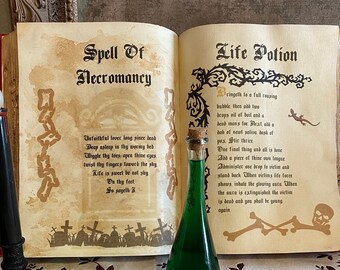 Spell Of
Necromancy
Unfaithful lover long since dead
Deep asleep in thy wormy bed
Wiggle thy toes, open thine eyes
twist thy fingers toward the sky
Life is sweet be not shy
On thy feet
So sayeth I
Life Potion
Bring to a full
bubble, then add two
drops oil of boil and a
dead mans toe Next add a
dab of newt potion dash of
pox. Stir thrice
One final thing and all is done
Add a piece of thine own tongue
Administer one drop to victim and
stand back When victims life force
phases, inhale the glowing aura When
the aura is extinguished the victim
is dead and you shall be young
again